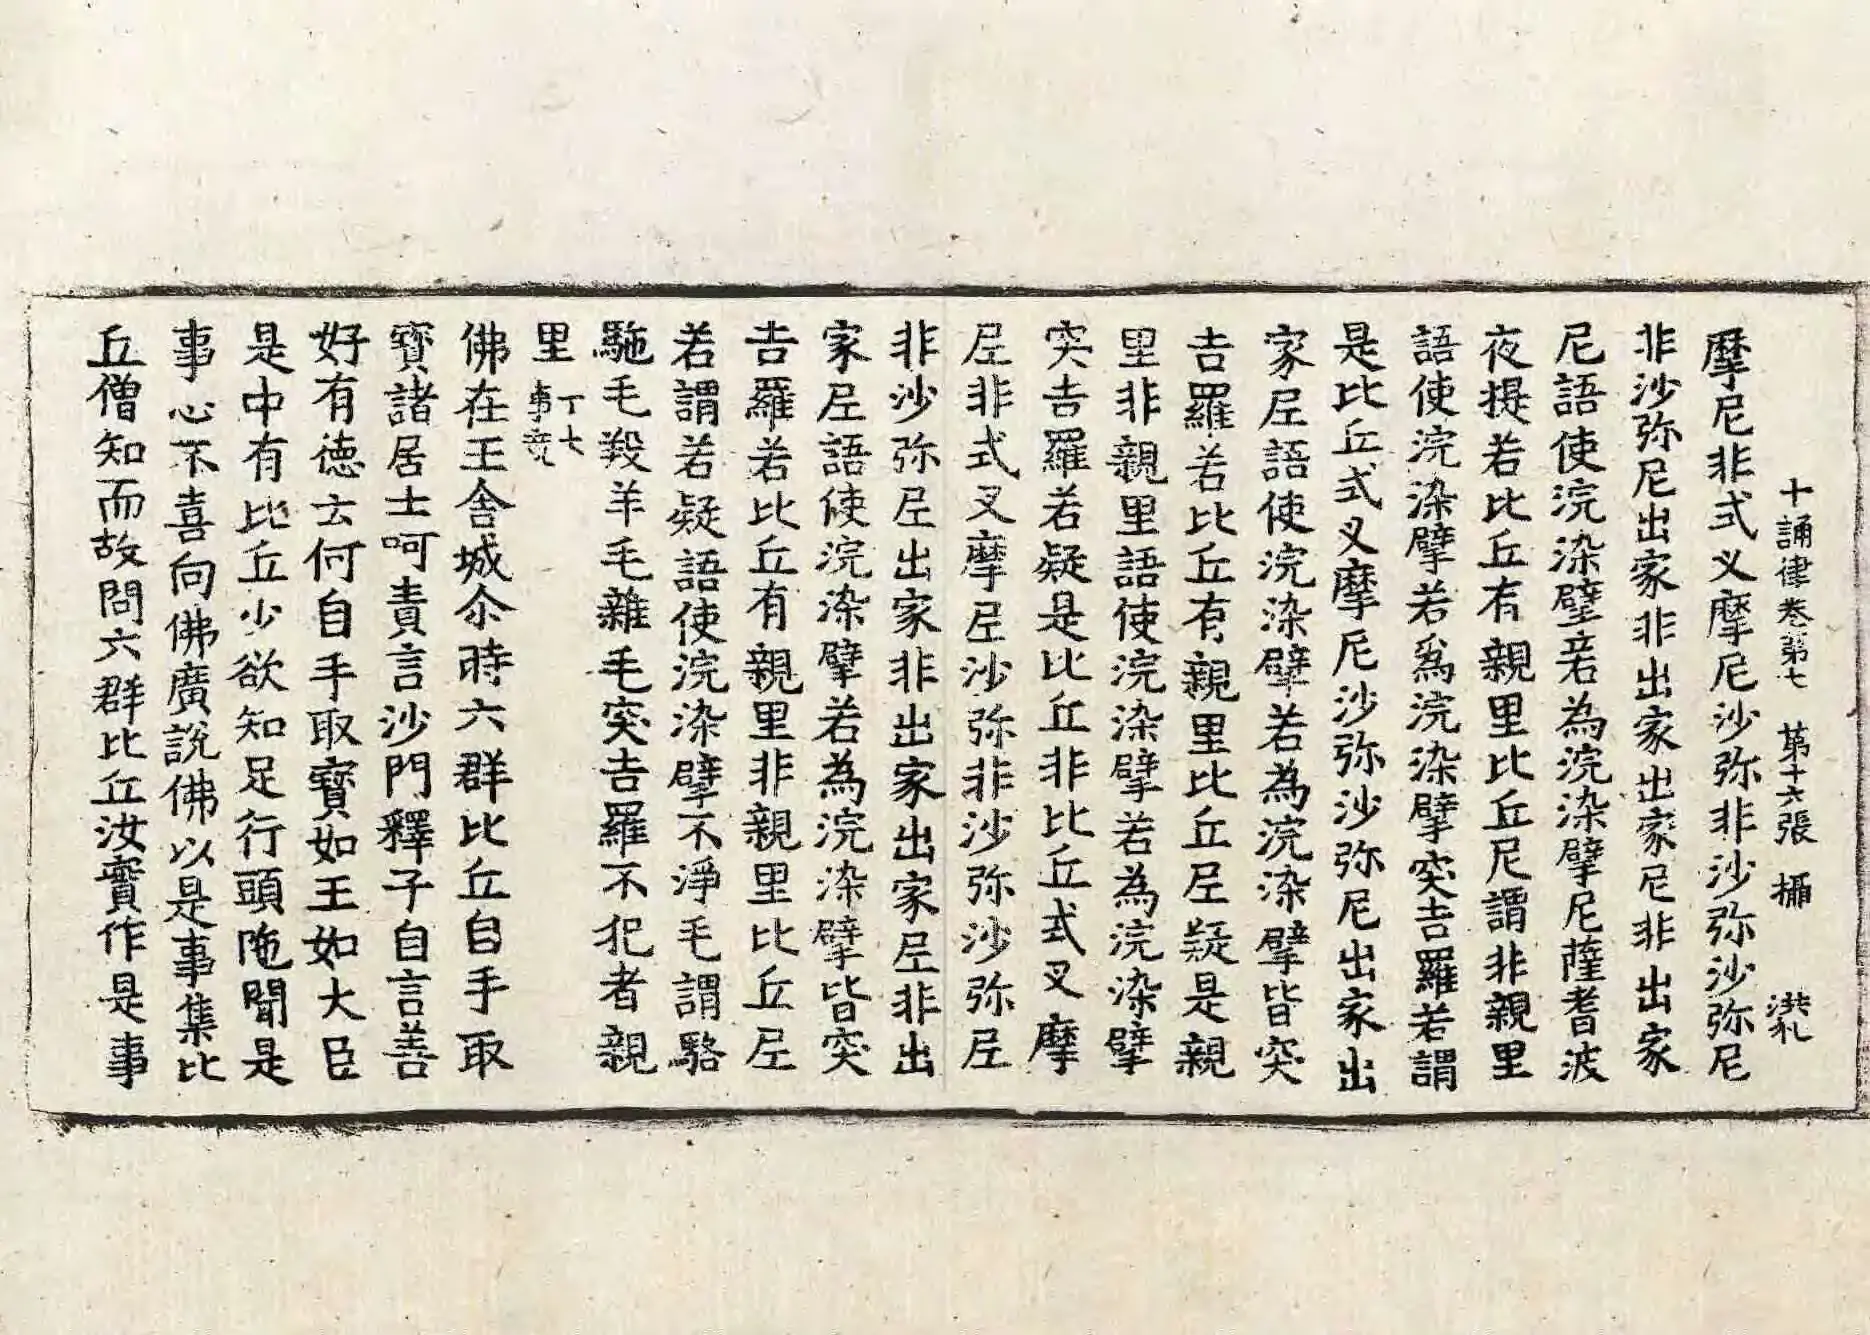 十誦律卷第七 第十六張 攝
摩尼非式叉摩尼沙弥非沙弥沙弥尼
非沙弥尼出家非出家出家尼非出家
尼語使浣染擘若為浣染擘尼薩耆波
夜提若比丘有親里比丘尼謂非親里
語使浣染擘若為浣染擘突吉羅若謂
是比丘式叉摩尼沙弥沙弥尼出家出
家尼語使浣染擘若為浣染擘皆突
吉羅若比丘有親里比丘尼疑是親
里非親里語使浣染擘若為浣染擘
突吉羅若疑是比丘非比丘式叉摩
尼非式叉摩尼沙弥非沙弥沙弥尼
非沙弥尼出家非出家出家尼非出
家尼語使浣染擘若為浣染擘皆突
吉羅若比丘有親里非親里比丘尼
若謂若疑語使浣染擘不淨毛謂駱
駞毛羖羊毛雜毛突吉羅不犯者親
里 十七事竟
佛在王舍城尒時六群比丘自手取
寳諸居士呵責言沙門釋子自言善
好有德云何自手取寳如王如大臣
是中有比丘少欲知足行頭陁聞是
事心不喜向佛廣說佛以是事集比
丘僧知而故問六群比丘汝實作是事